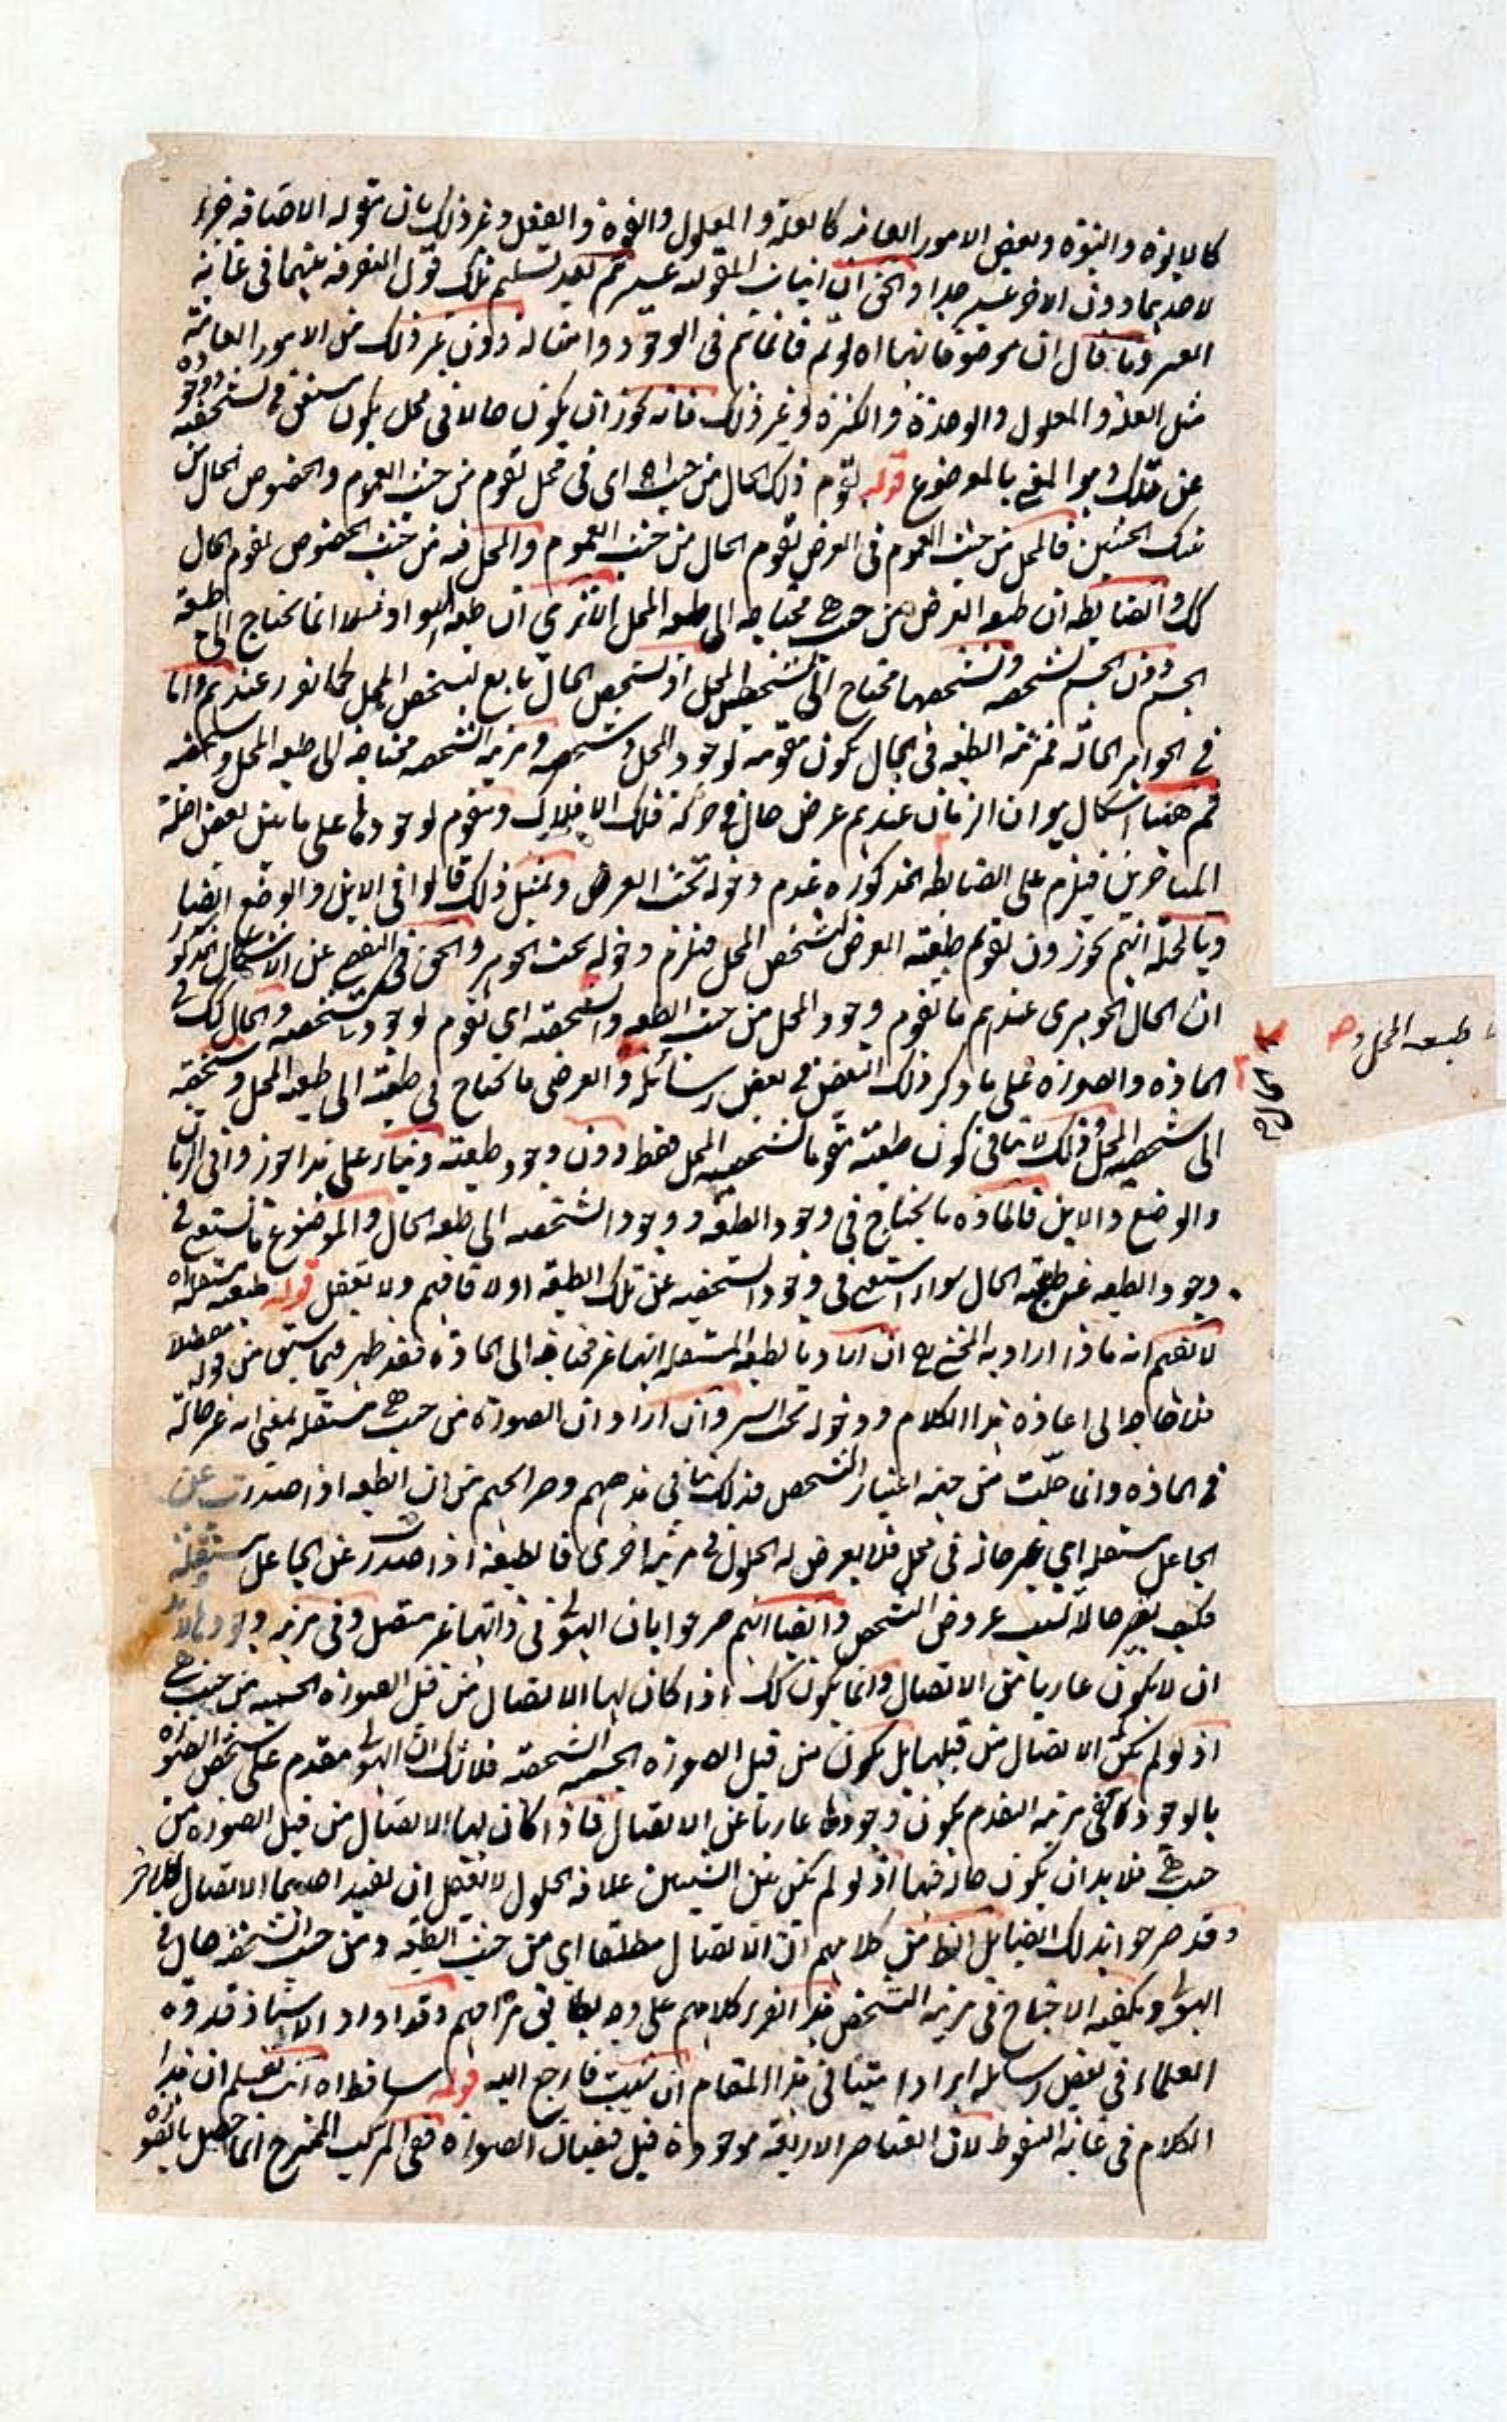 كالابوة والنبوة وبعض الامور العامة كالعلة والمعلول والقوة والفعل وغير ذلك بان مقولة الاضافة جزء
لاحديهما دون الاخر عسير جدا والحق ان اثبات المقولية عسير ثم بعد تسليم تلك نقول التفرقة بينهما في غاية
العسر وما قال ان موضوعاتها اه لو تم فانما تم في الوجود وامثاله دون غير ذلك من الامور العامة
مثل العلة والمعلول والوحدة والكثرة وغير ذلك فانه يجوز ان يكون حالا في محل يكون مستغن في تشخصه ووجوده
عن تلك وهو المعنى بالموضوع قوله تقوم ذلك الحال من حيث اه اى في محل تقوم من حيث العموم والخصوص الحال من
تينك الحيثين فالمحل من حيث العموم في العرض تقوم الحال من حيث العموم والمحل فيه من حيث الخصوص تقوم الحال
كك والضابطة ان طبيعة العرض من حيث هي محتاجة الى طبيعة المحل الا ترى ان طبيعة السواد مثلا انما تحتاج الى طبيعة
الجسم دون الجسم تشخصه وتشخصها محتاج الى تشخص المحل اذ تشخص الحال تابع لتشخص المحل كما تقرر عندهم واما
في الجواهر الحالة فمرتبة الطبيعة في الحال يكون مقومة لوجود المحل وتشخصه ومرتبة التشخصية محتاجة الى طبيعة المحل وتشخصه
ثم ههنا اشكال هو ان الزمان عندهم عرض حال في حركة فلك الافلاك وتقوم لوجودها على ما بين بعض اجلة
المتاخرين فيلزم على الضابطة المذكورة عدم دخوله تحت العرض وبمثل ذلك قالوا في الاين والوضع ايضا
وبالجملة انهم يجوزون تقوم طبيعة العرض لتشخص المحل فيلزم دخوله تحت الجوهر والحق في التفصى عن الاشكال المذكور
ان الحال الجوهرى عندهم ما تقوم وجود المحل من حيث الطبيعة والتشخصية اى تقوم لوجودها وتشخصه والحال كك في
المادة والصورة على ما ذكر ذلك البعض في بعض رسائله والعرض ما يحتاج في طبيعته الى طبيعة المحل وتشخصه
الى تشخصية المحل وذلك لا ينافي كون طبيعته مقوما لتشخصية المحل فقط دون وجود طبيعته وبناء على هذا جوزوا في الزمان
والوضع والاين فالمادة ما يحتاج في وجود الطبيعة ووجود التشخصية الى طبيعة الحال والموضوع ما يستغنى في
وجود الطبيعة عن طبيعة الحال سواء استغنى في وجود التشخصية عن تلك الطبيعة اولا فافهم ولا تغفل قوله طبيعته مستقلة اه
لا نفهم انه ماذا اراد به المحشي رح ان اراد بالطبيعة المستقلة انها غير محتاجة الى المادة فقد ظهر فيما سبق من قوله مفصلا
فلا حاجة الى اعادة هذا الكلام ودخوله تحت السر وان اراد ان الصورة من حيث هي مستقلة بمعنى انه غير حالة
في المادة وانما حلت من جهة اعتبار التشخص فذلك ينافي مذهبهم وصراحتهم من ان الطبيعة اذا صدرت عن
الجاعل مستقلة اي غير حالة في محل فلا يعرض له الحلول في مرتبة اخرى فالطبيعة اذا صدرت عن الجاعل مستقلة
فكيف يصير حالا بسبب عروض التشخص وايضا انهم صرحوا بان الهيولى في ذاتها غير متصل وفي مرتبة وجودها لابد
ان لا يكون عاريا من الاتصال وانما يكون كك اذا كان لها الاتصال من قبل الصورة الجسمية من حيث هي
اذ لو لم يكن الاتصال من قبلها بل يكون من قبل الصورة الجسمية الشخصية فلا شك ان الهيولى مقدم على تشخص الصورة
بالوجود ففي مرتبة التقدم يكون وجودها عاريا عن الاتصال فاذا كان لها الاتصال من قبل الصورة من
حيث هي فلا بد ان يكون حالة فيها اذ لو لم يكن بين الشيئين علاقة الحلول لا يعقل ان يفيد احدهما الاتصال للاخر
وقد صرحوا بذلك ايضا بل الظ من كلامهم ان الاتصال مطلقا اي من حيث الطبيعة ومن حيث التشخص حال في
الهيولى ويكفيه الاحتياج في مرتبة التشخص هذا تقرير كلامهم على وجه يطابق مرامهم وقد اورد الاستاذ قدوة
العلماء في بعض رسائله ايرادا متينا في هذا المقام ان شئت فارجع اليه قوله ساقط اه انت تعلم ان هذا
الكلام في غاية السقوط لان العناصر الاربعة موجودة قبل فيضان الصورة ففي المركب الممتزج انما حصل بالقوة
طبيعة المحل وحده